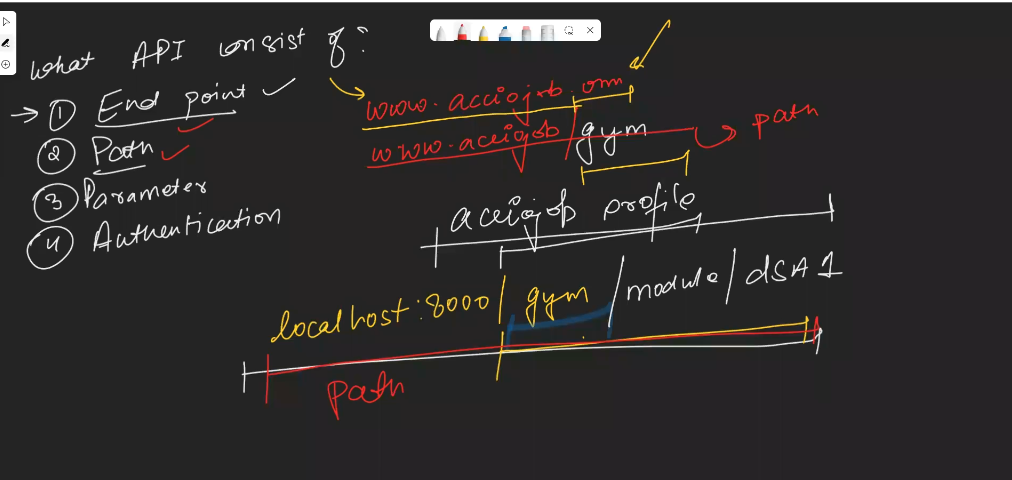 What API consist of?
→ ① End point ✓
② Path ✓
③ Parameter
④ Authentication
www.acciojob.com
www.acciojob/gym
path
acciojob profile
localhost:8000/gym/module/dSA 1
path